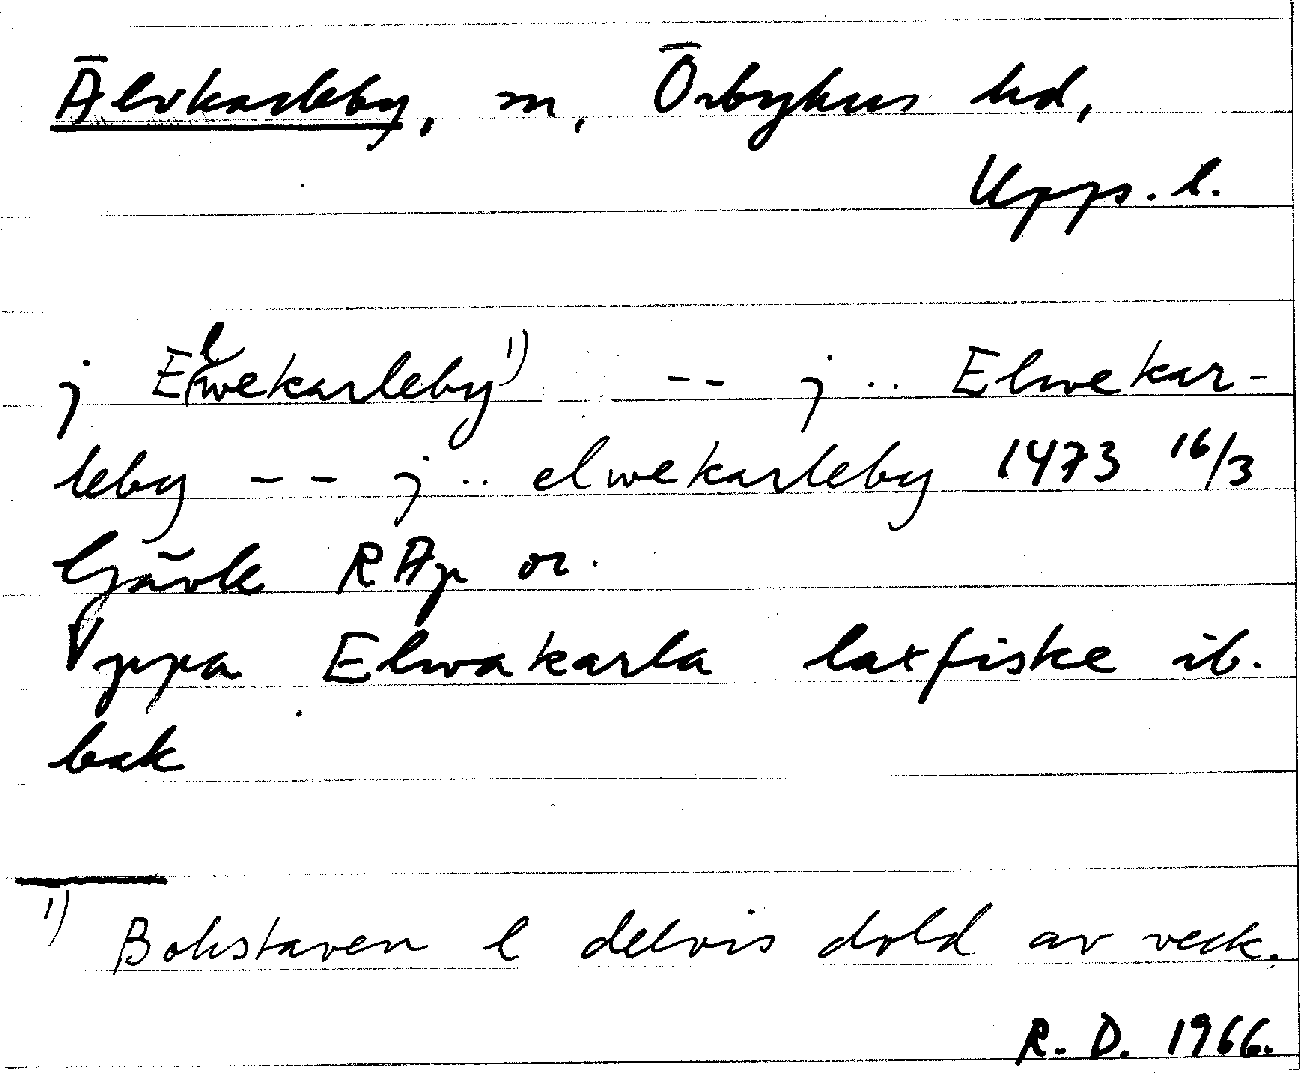 Älvkarleby, sn, Örbyhus hd,
Upps. l.
j Elwekarleby 1) -- j .. Elwekar-
leby -- j .. elwekarleby 1473 16/3
Gävle RAp or.
Vppa Elwakarla laxfiske ib.
bak
1) Bokstaven l delvis dold av veck.
R. D. 1966.